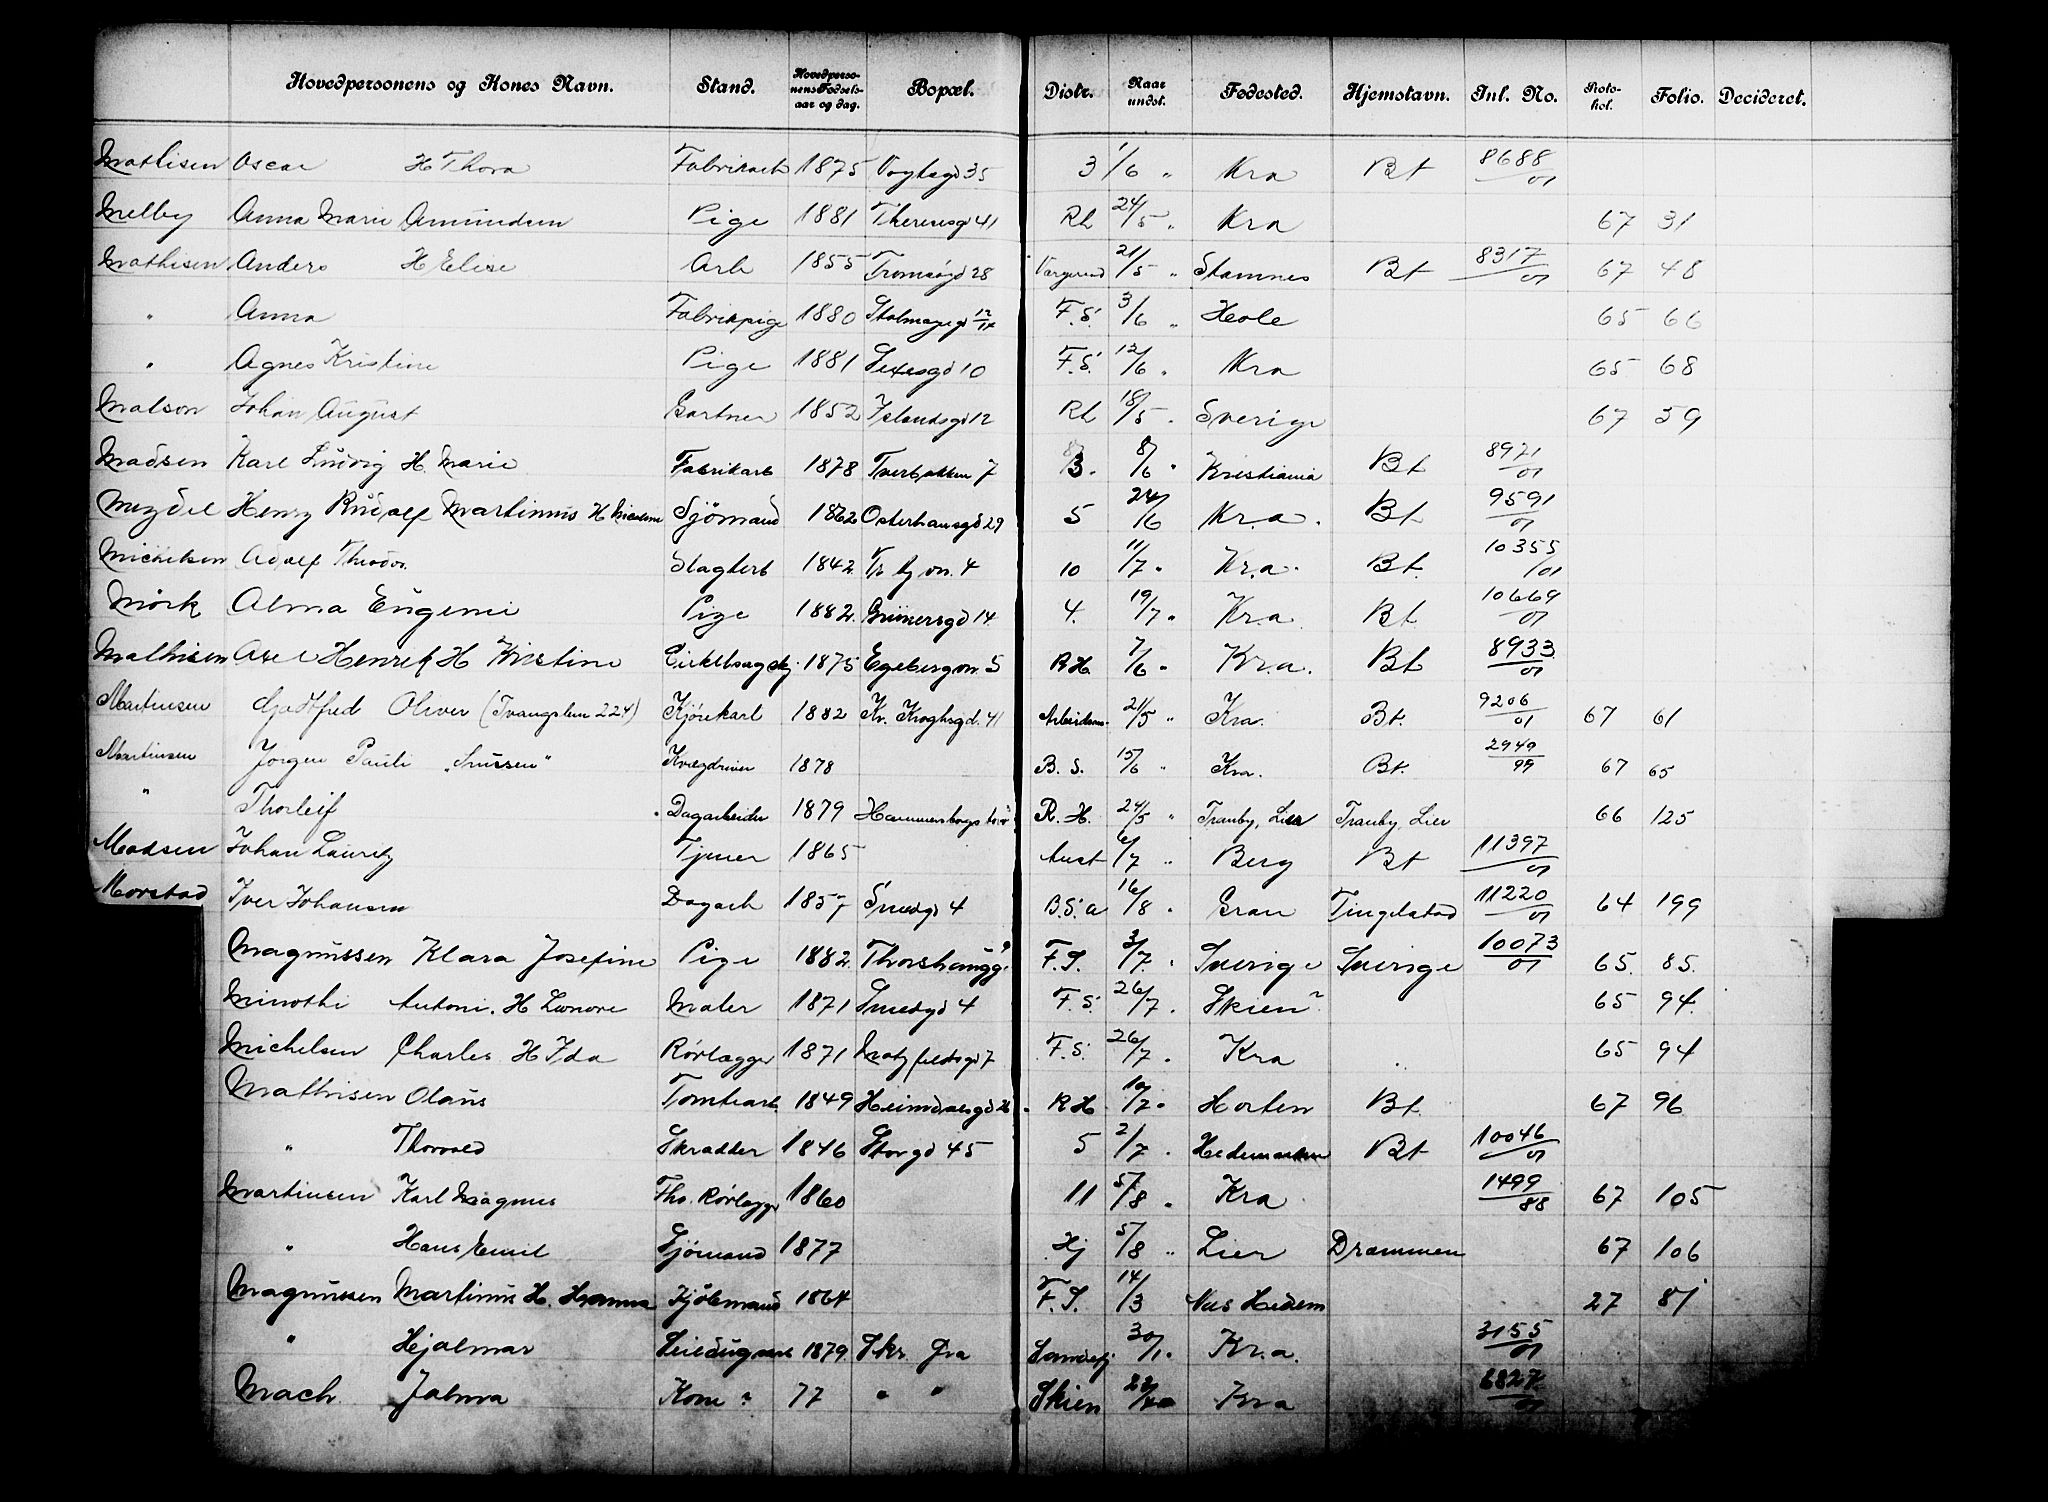 Hovedpersonens og Kones Navn. Stand. Hovedperso-nens Fødsels-aar og dag. Bopæl. Distr. Naar undst. Fødested. Hjemstavn. Jnl. No. Proto-kol. Folio. Decideret.
Mathisen Oscar H Thora Fabrikarb 1875 Vogtsgd 35 3 1/6 " Kra Bt 8688/01
Melby Anna Marie Amundsen Pige 1881 Theresesgd 41 Rh 24/5 " Kra 67 31
Mathisen Anders H Elise Arb 1855 Tromsøgd 28 21/5 " Stamnes Bt 8317/01 67 48
" Anna Fabrikpige 1880 F.S. 3/6 " Hole 65 66
" Agnes Kristine Pige 1881 10 F.S. 12/6 " Kra 65 68
Matson Johan August Gartner 1852 Islandsgd 12 Rh 18/5 " Sverige 67 59
Madsen Karl Ludvig H. Marie Fabrikarb 1878 Tverbakken 7 3. 8/6 " Kristiania Bt 8971/01
Meydel Henry Rudolf Martinius H Sjömand 1862 Osterhausgd 29 5 24/6 Kr.a. Bt 9591/01
Michelsen Adolf Theodor Slagterb 1842 4 10 11/7 " Kr.a. Bt 10355/01
Mörk Alma Eugenie Pige 1882 Grünersgd 14 4. 19/7 " Kr.a Bt 10669/01
Mathisen Axel Henrik H Kristine 1875 Egebergvn. 5 RH. 7/6 " Kr.a. Bt 8933/01
Martinsen Gottfred Oliver (Tvangslem 224) Kjørekarl 1882 Kr. Kroghsgd. 41 Arbeidsan. 21/5 " Kra. Bt. 9206/01 67 61
Martinsen Jørgen Pauli "Snussen" Kvægdriver 1878 B.S. 15/6 " Kra. Bt. 2949/99 67 65
" Thorleif Dagarbeider 1879 Hammersborgs R.H. 24/5 " Tranby, Lier Tranby, Lier 66 125
Madsen Johan Lauritz Tjener 1865 Aust 6/7 " Berg Bt 11397/01
Morstad Iver Johansen Dagarb 1857 Smedgd 4 B.S.a 16/8 " Gran Tingelstad 11220/01 64 199
Magnussen Klara Josefine Pige 1882 Thorshaugg. 9 F.S. 3/7. " Sverige Sverige 10073/01 65. 85.
Minothi Antoni. H Leonore Maler 1871 Smedgd 4 F.S. 26/7 " Skien? 65 94.
Michelsen Charles H Ida Rörlægger 1871 Motzfeldsgd 7 F.S. 26/7 " Kra 65 94
Mathisen Olaus Tomtearb. 1849 Heimdalsgd 26 RH 10/7 " Horten Bt. 67 96
" Thorvald Skrædder 1846 Storgd 45 5 2/7 " Hedemarken Bt 10046/01
Martinsen Karl Magnus Fhv. Rørlægger 1860 11 5/8 " Kra 1499/88 67 105
" Hans Emil Sjömand 1877 Hj 5/8 " Lier Drammen 67 106
Magnussen Martinius H. Hanna Kjöbmand 1864 F.S. 14/3 Næs Hedem 27 81
" Hjalmar 1879. Skr. fra Sandefj 30/1 " Kr.a. 3155/01
Mach Jalma Kone? 77 " " Skien Kra 6827/01